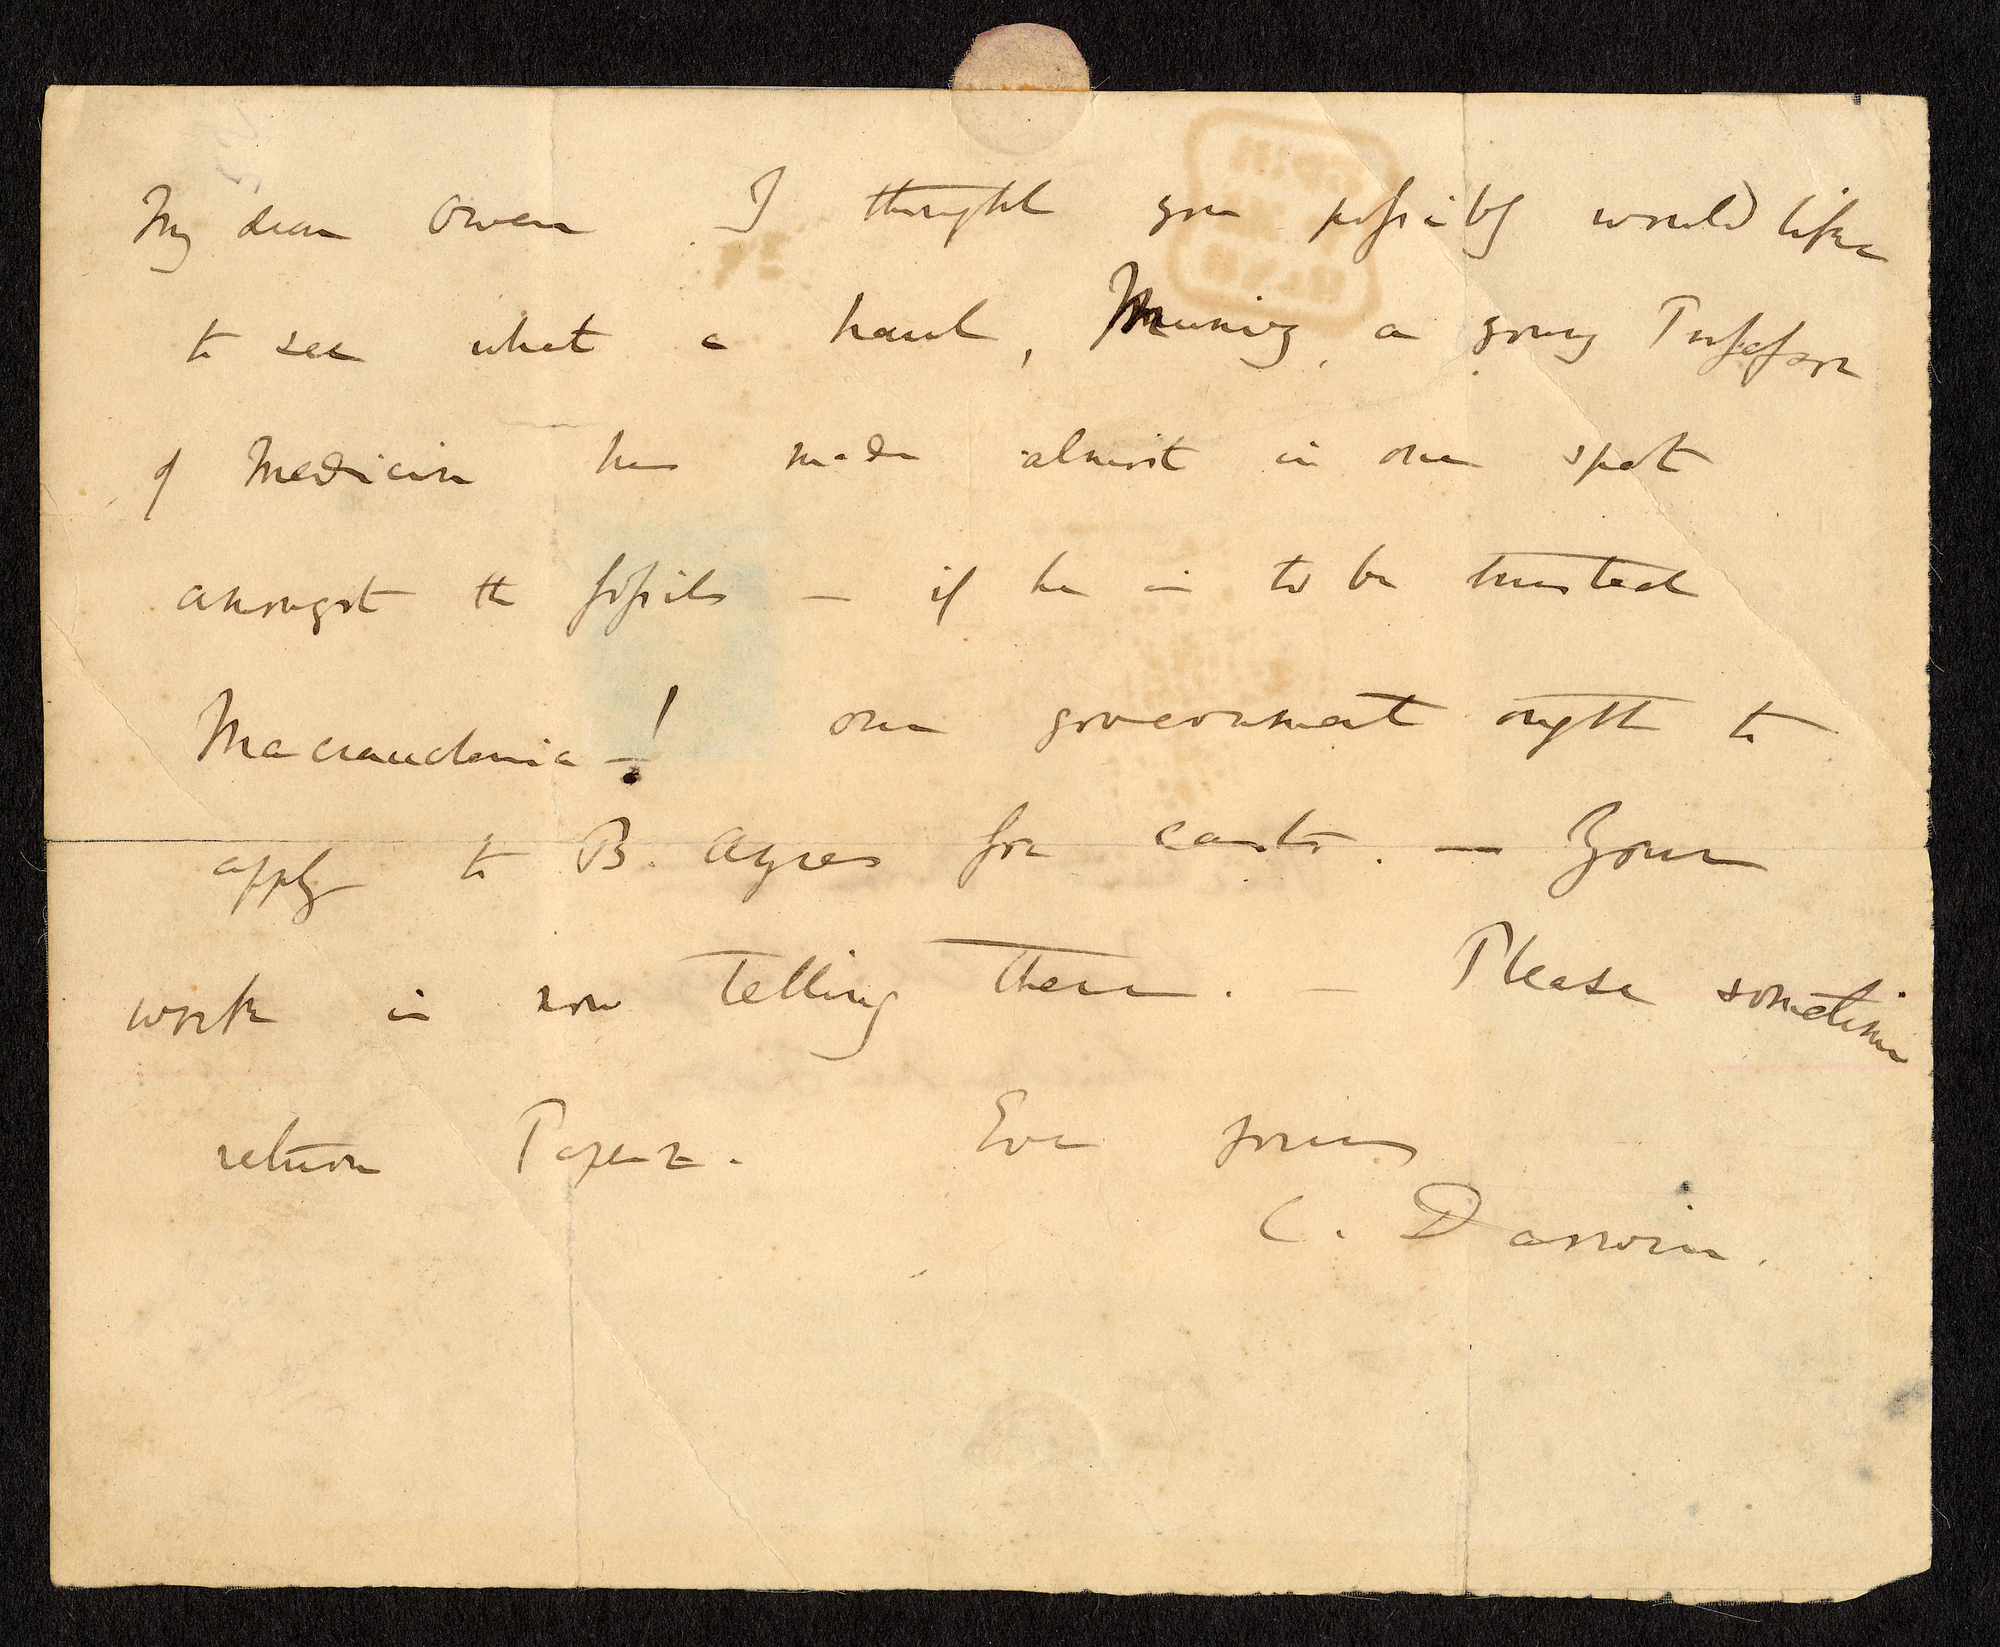 My dear Owen I thought you possibly would like
to see what a haul, Muniz, a young Professor
of Medicin has made almost in one spot
amongst the fossils — if he is to be trusted
Macrauchenia —! our government ought to
apply to B. Ayres for casts. — Your
work is now telling there. — Please sometime
return Paper. Ever yours
C. Darwin.